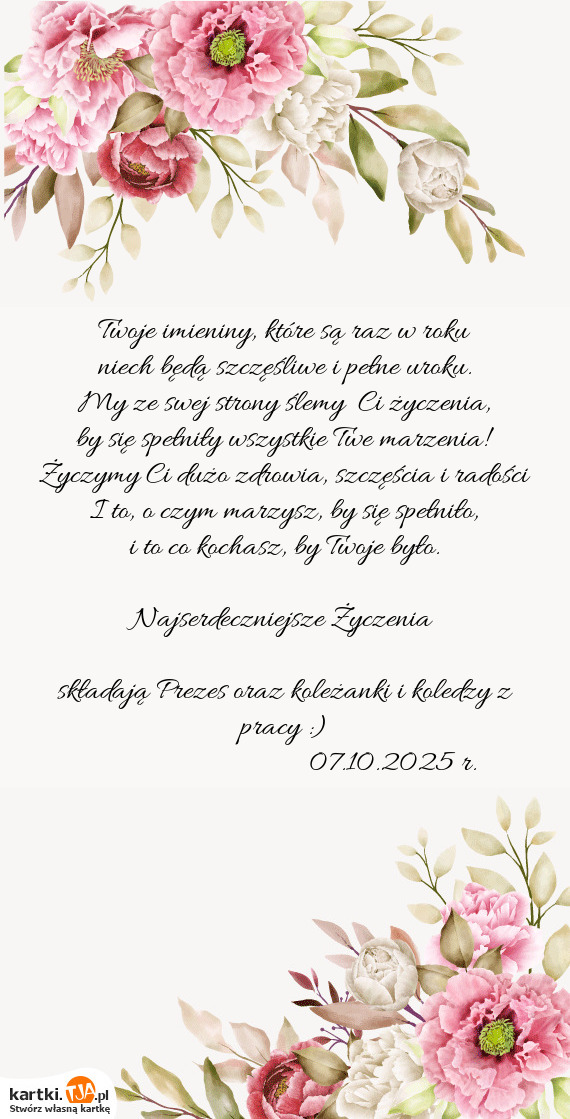 Twoje imieniny, które są raz w roku
niech będą szczęśliwe i pełne uroku.
My ze swej strony ślemy Ci życzenia,
by się spełniły wszystkie Twe marzenia!
Życzymy Ci dużo zdrowia, szczęścia i radości
I to, o czym marzysz, by się spełniło,
i to co kochasz, by Twoje było.
Najserdeczniejsze Życzenia
składają Prezes oraz koleżanki i koledzy z
pracy :)
07.10.2025 r.
kartki.TJA.pl
Stwórz własną kartkę